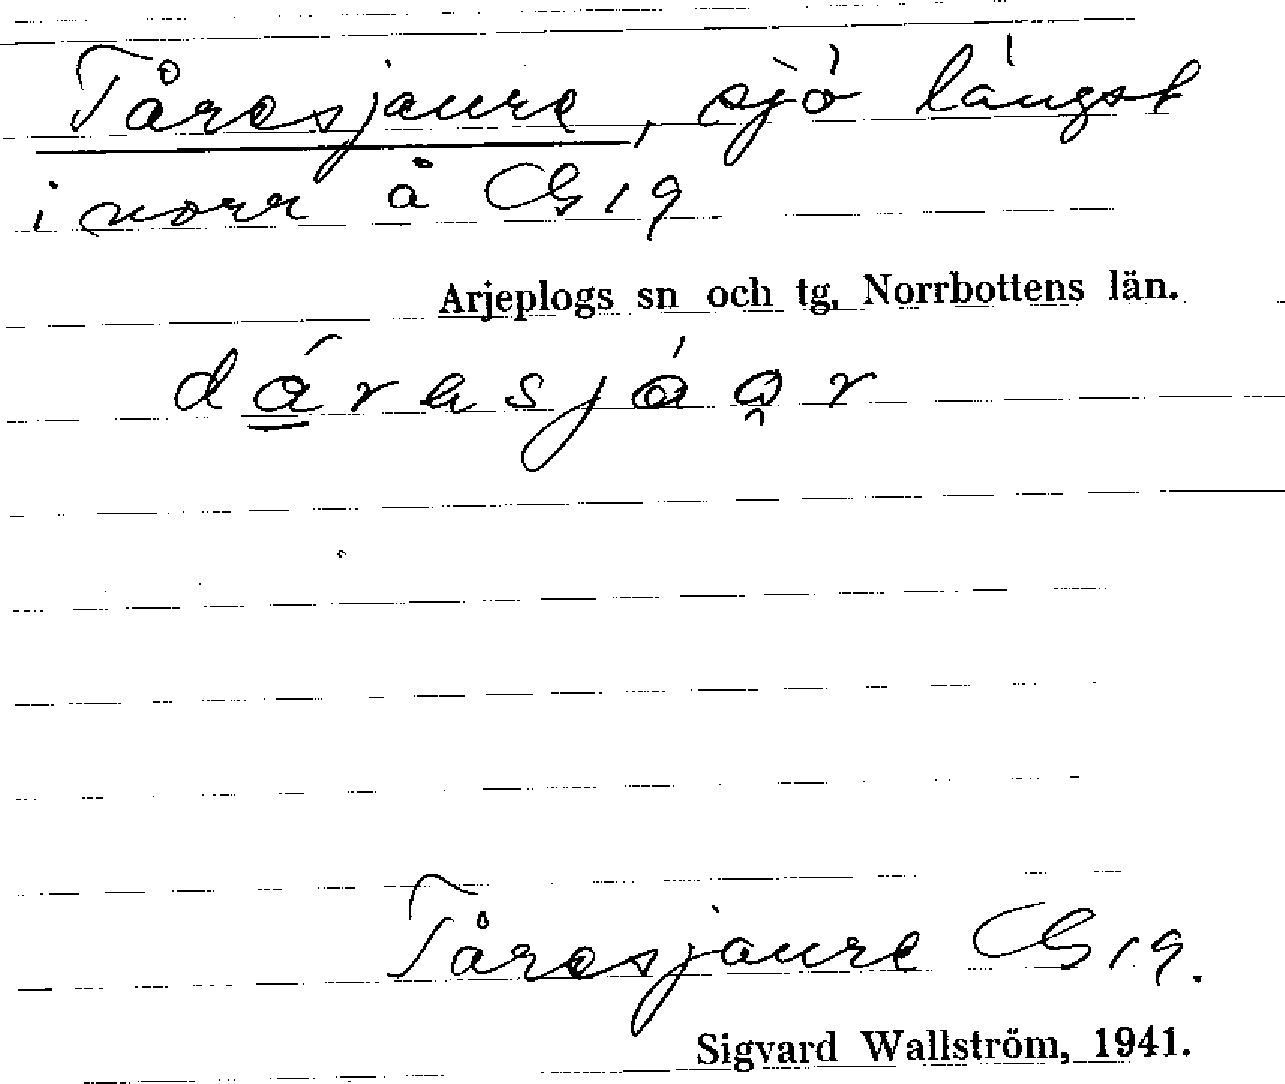 Tåresjaure, sjö längst
i norr å GS 19
Arjeplogs sn och tg, Norrbottens län.
Tåresjaure GS 19.
Sigvard Wallström, 1941.